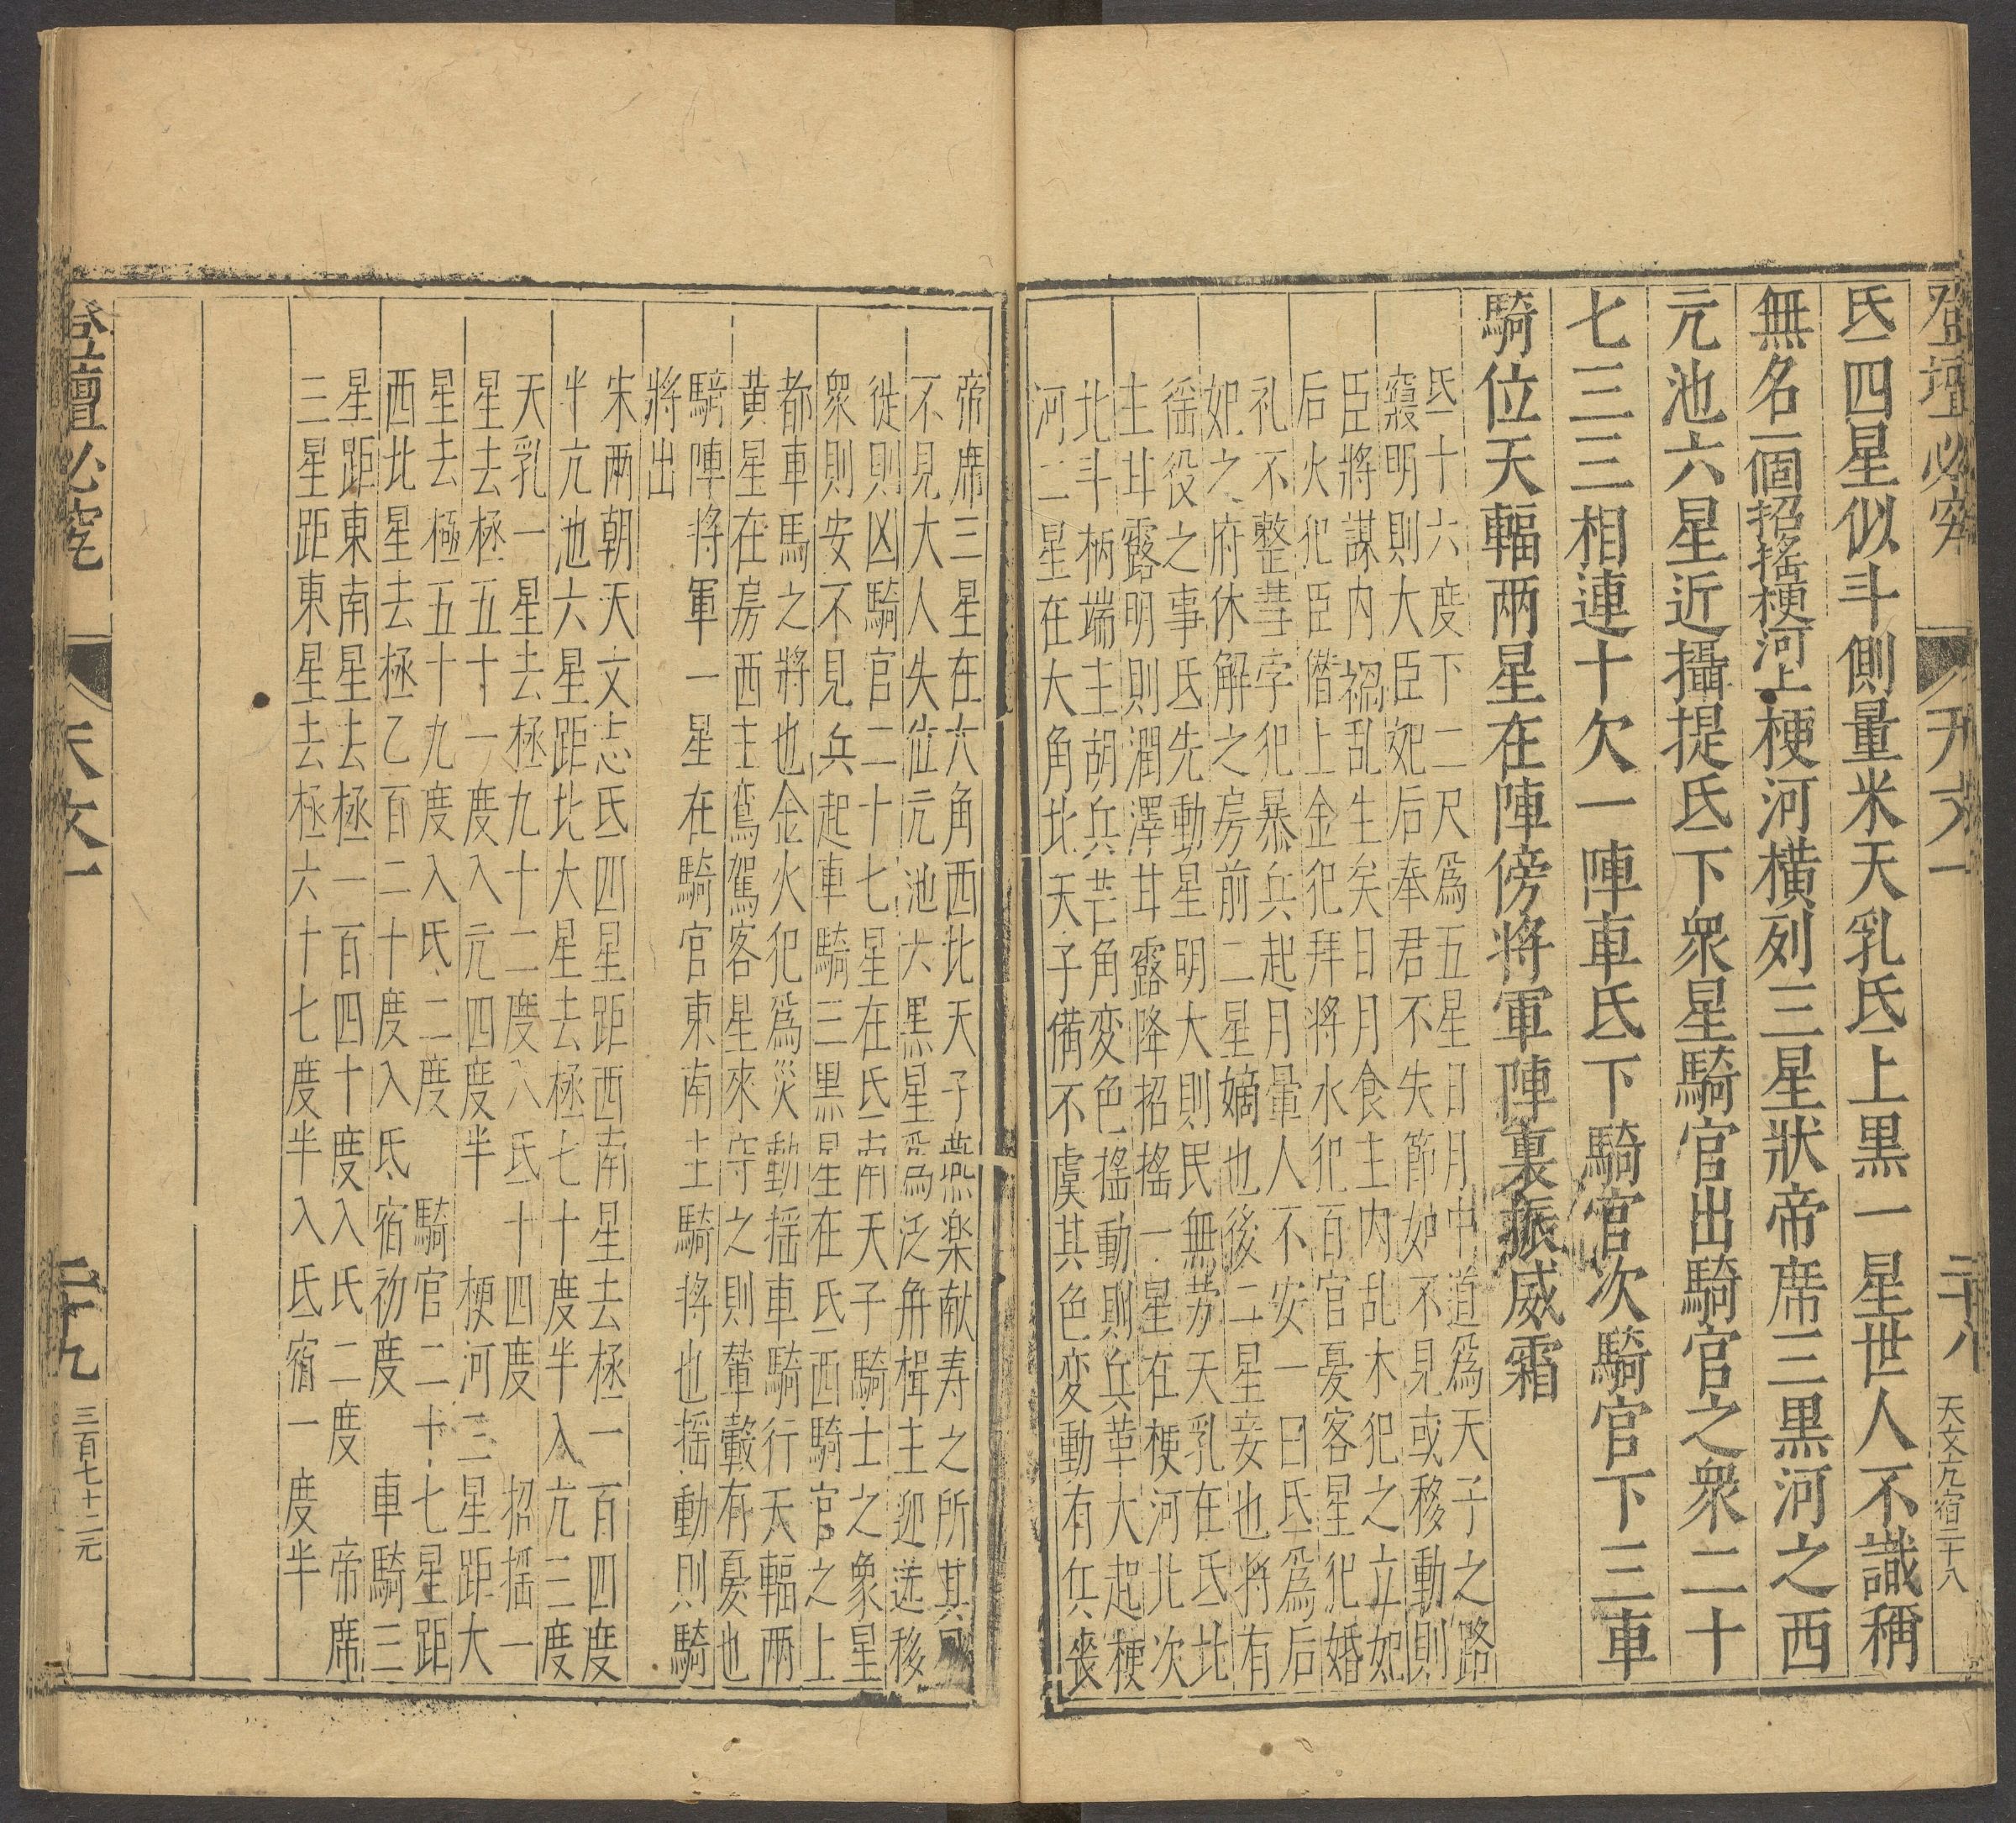 登壇必究 天文一 二十八 天文亢宿二十八
氐四星似斗側量米天乳氐上黒一星世人不識稱
無名一個招搖梗河上梗河横列三星狀帝席三黒河之西
亢池六星近攝提氐下衆星騎官出騎官之衆二十
七三三相連十欠一陣車氐下騎官次騎官下三車
騎位天輻两星在陣傍将軍陣裏振威霜
氐十六度下二尺爲五星日月中道爲天子之路
寢明則大臣妃后奉君不失節如不見或移動則
臣將謀内禍乱生矣日月食主内乱木犯之立妃
后火犯臣僭上金犯拜將水犯百官憂客星犯婚
礼不整彗孛犯暴兵起月暈人不安一曰氐爲后
妃之府休解之房前二星嫡也後二星妾也将有
徭役之事氐先動星明大則民無劳天乳在氐北
主甘露明則潤澤甘露降招搖一星在梗河北次
北斗柄端主胡兵芒角変色搖動則兵革大起梗
河二星在大角北天子備不虞其色変動有兵喪
帝席三星在大角西北天子燕楽献寿之所其
不見大人失位亢池六黒星爲泛舟楫主迎送移
徙則凶騎官二十七星在氐南天子騎士之象星
衆則安不見兵起車騎三黒星在氐西騎官之上
都車馬之將也金火犯爲災動揺車騎行天輻兩
黄星在房西主鸞駕客星來守之則輦轂有憂也
騎陣将軍一星在騎官東南主騎将也揺動則騎
將出
宋兩朝天文志氐四星距西南星去極一百四度
半亢池六星距北大星去極七十度半入亢三度
天乳一星去極九十二度入氐十四度 招揺一
星去極五十一度入亢四度半 梗河三星距大
星去極五十九度入氐二度 騎官二十七星距
西北星去極乙百二十度入氐宿初度 車騎三
星距東南星去極一百四十度入氐二度 帝席
三星距東星去極六十七度半入氐宿一度半
登壇必究 天文一 二十九 三百七十二元